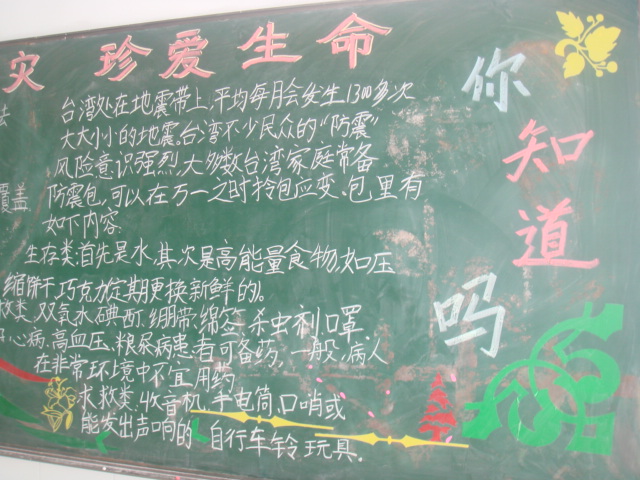 灾 珍爱生命
台湾处在地震带上,平均每月会发生1300多次
法
大大小小的地震。台湾不少民众的“防震”
风险意识强烈,大多数台湾家庭常备
覆盖 防震包,可以在万一之时拎包应变、包里有
如下内容
生存类:首先是水,其次是高能量食物,如压
缩饼干巧克力定期更换新鲜的。
救类、双氧水、碘酊、绷带、绵签、杀虫剂、口罩、
心病、高血压、粮尿病患者可备药,一般病人
在非常环境中不宜用药
求救类、收音机、手电筒、口哨或
能发出声响的 自行车铃 玩具.
你知道吗